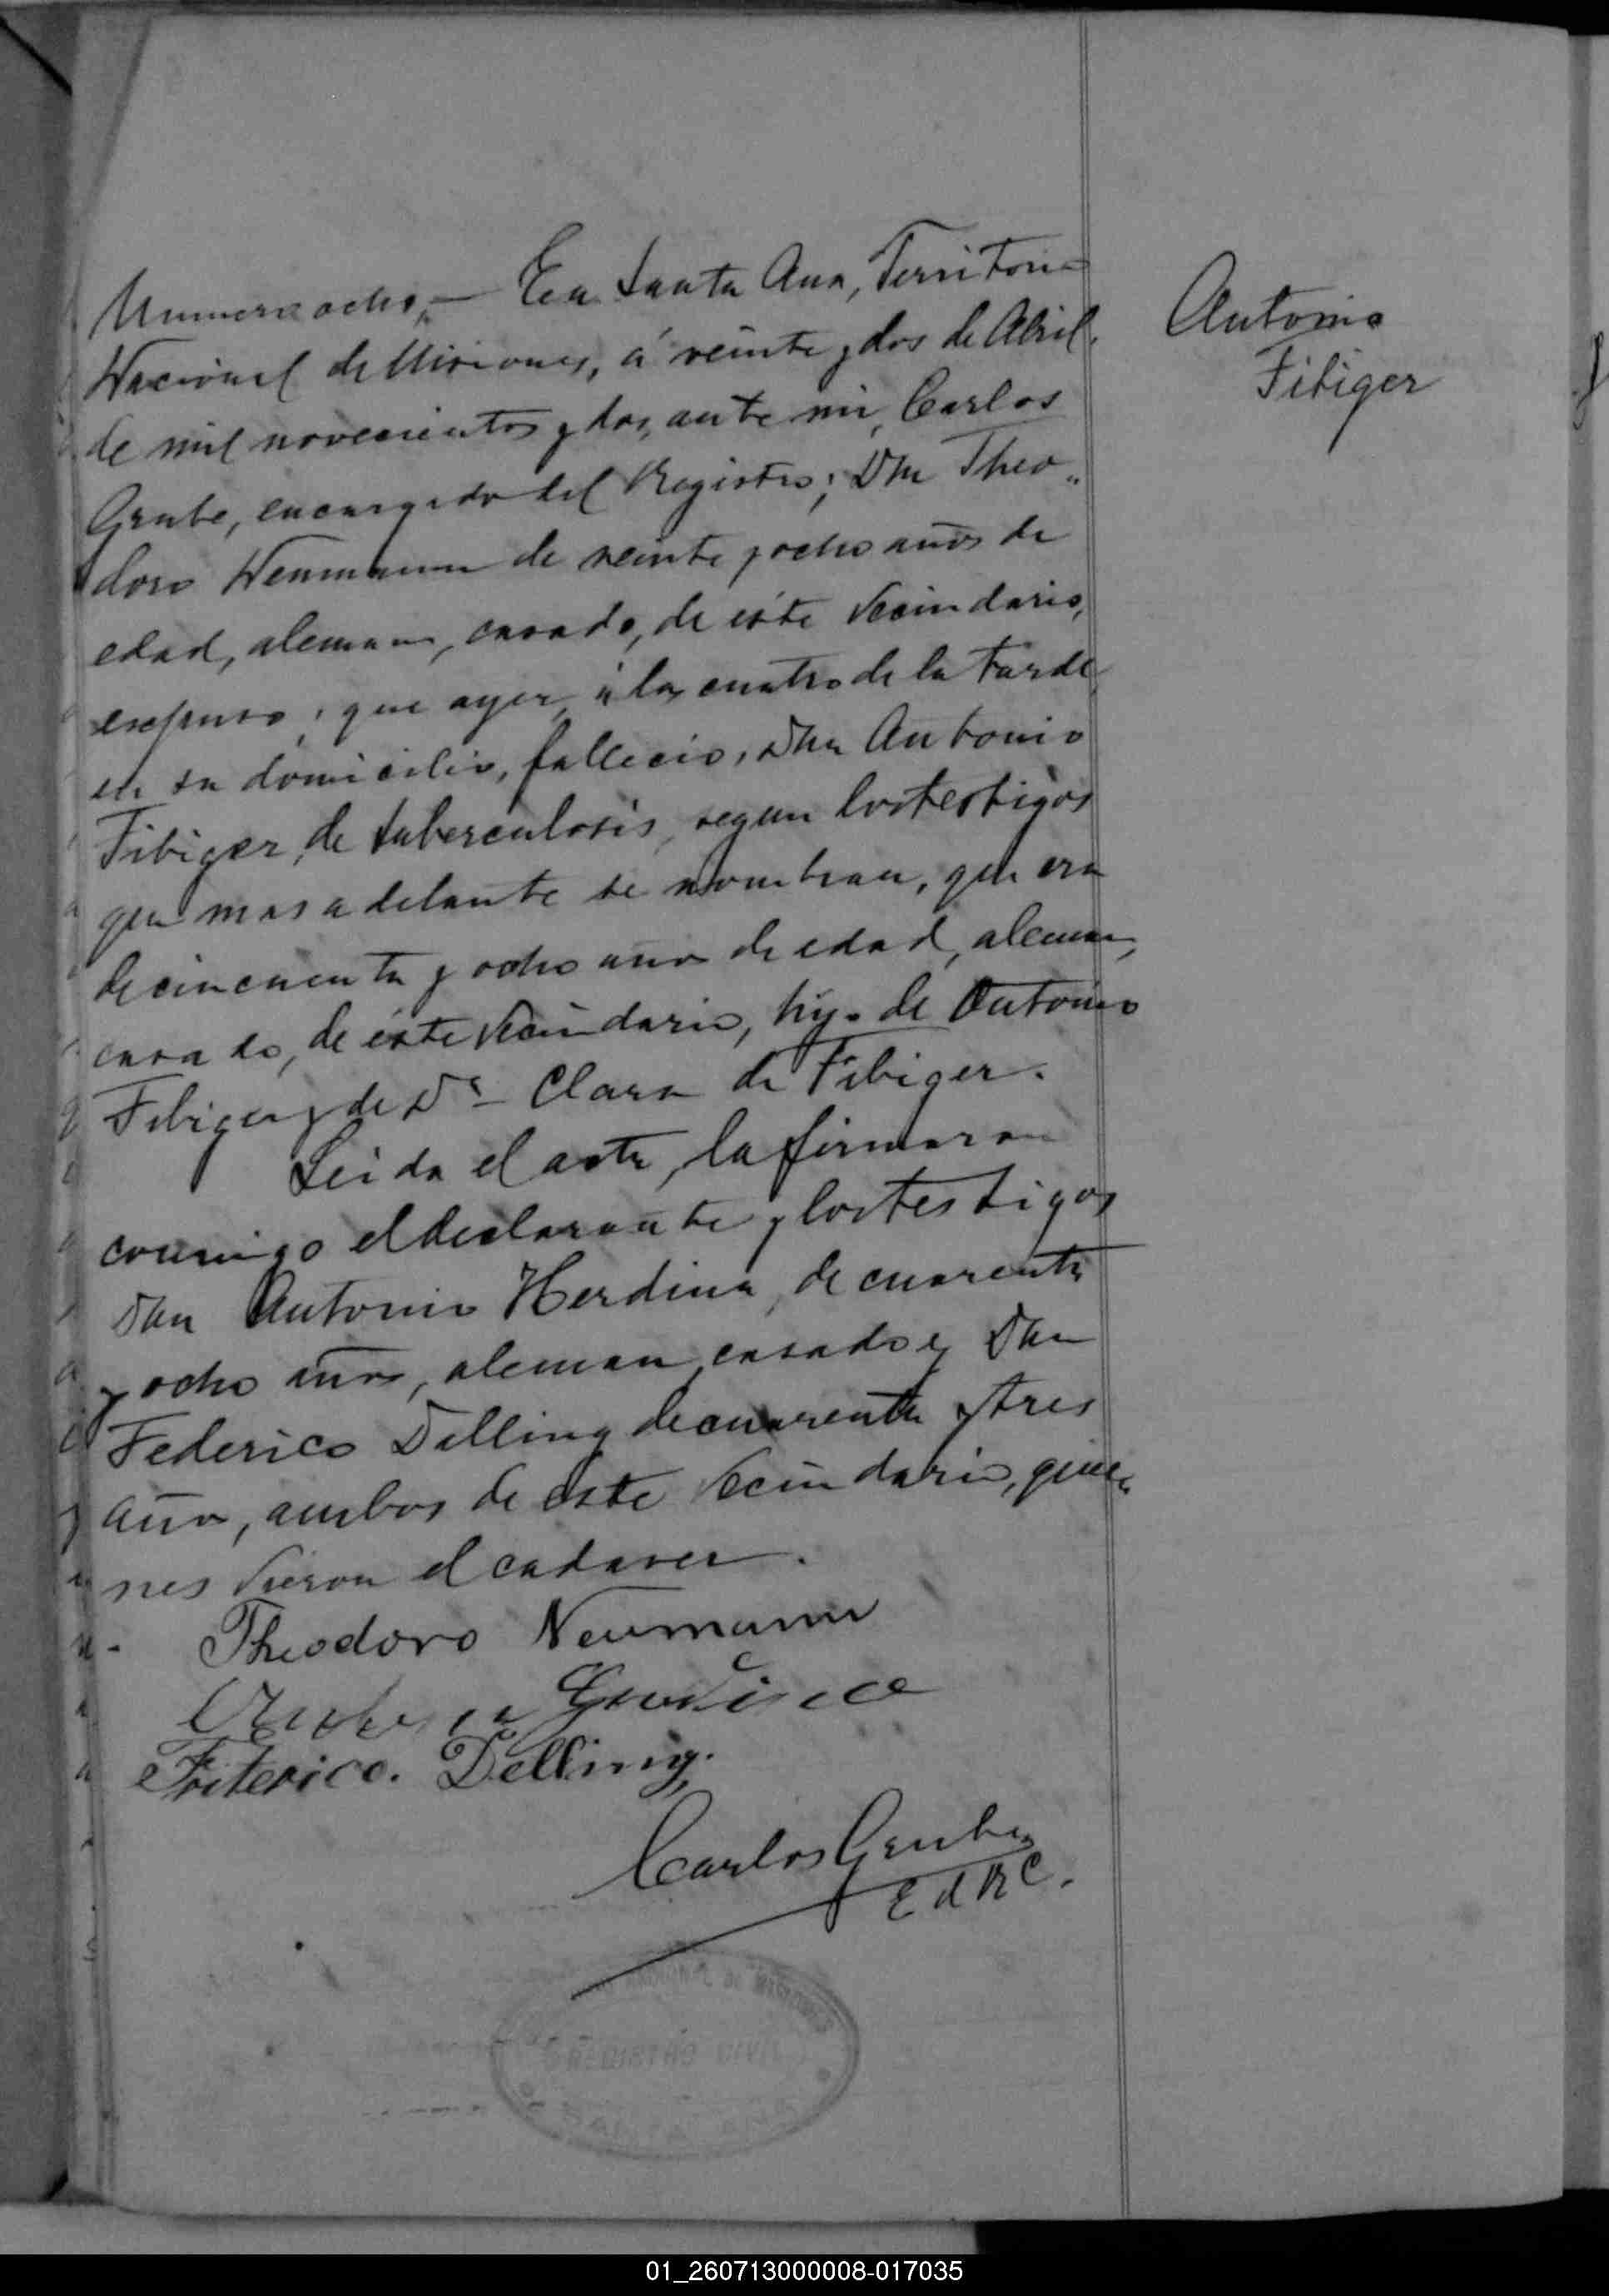 Numero ocho,— En Santa Ana, Territorio
Nacional de Misiones, á veinte y dos de Abril,
de mil novecientos y dos, ante mi, Carlos
Grube, encargado del Registro; Don Theo„
doro Neumann de veinte y ocho años de
edad, aleman, casado, de éste vecindario,
expuso, que ayer, á las cuatro de la tarde,
en su domicilio, fallecio, Don Antonio
Fibiger, de tuberculosis, segun los testigos
que mas adelante se nombran, que era
de cincuenta y ocho años de edad, aleman,
casado, de éste vecindario, hijo de Antonio
Fibiger y de Dª Clara de Fibiger.
Leida el acta, la firmaron
conmigo el declarante y los testigos
Don Antonio Herdina, de cuarenta
y ocho años, aleman, casado y Don
Federico Delling de cuarenta y tres
años, ambos de éste vecindario, quie„
nes vieron el cadaver.
Theodoro Neumann
Friterico. Delling.
Carlos Grube
E d R C.
Antonio
Fibiger
01_260713000008-017035